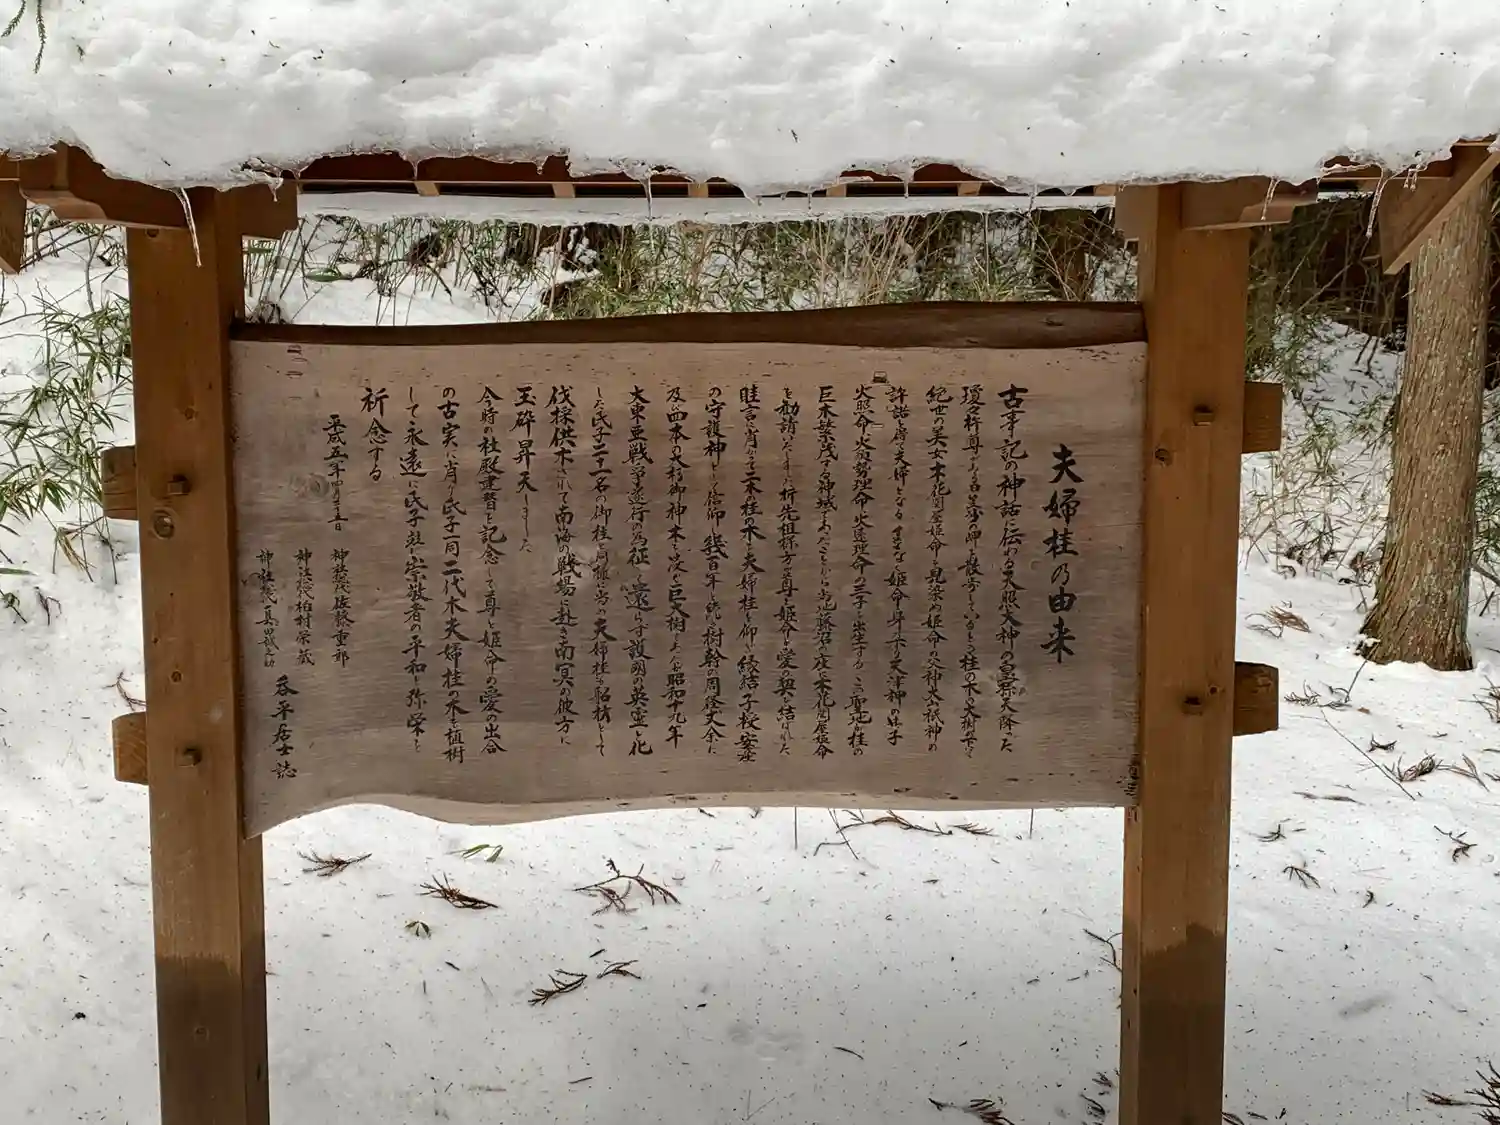 夫婦桂の由来
古事記の神話に伝わる天照大神の皇孫天降った
瓊々杵尊がある日笠沙の岬を散歩していると桂の木の大樹の下で
絶世の美女木花開屋姫命を見染め姫命の父神大山祇神の
許諾を得て夫婦となる まもなく姫命身ごもり天津神の御子
火照命火須勢理命火遠理命の三子を出生する この聖地も桂の
巨木繁茂する神域であったことから当地藤沼の座に木花開屋姫命
を勧請いたしました 祈先祖称方は尊と姫命を愛の契を結ばれた
睦言に肖かって二本の桂の木を夫婦桂と仰いで縁結子授安産
の守護神として信仰し幾百年を経た樹幹の周径丈余に
及ぶ四本の大杉御神木を凌ぐ巨大樹であったが昭和十九年
大東亜戦争遂行の為征って還らず護国の英霊と化
した氏子二十一名の御柱を同様にこの夫婦桂も船橋として
伐採供木されて南海の戦場に赴き南冥の彼方に
玉砕昇天しました
今時の社殿建替を記念して尊と姫命の愛の出合
の古実に肖り氏子一同二代木夫婦桂の木を植樹
して永遠に氏子並に崇敬者の平和と弥栄を
祈念する
平成五年四月十五日
神社総代 佐藤重郎
神社総代 柏村栄蔵
神社総代 真田
呑平居士 誌